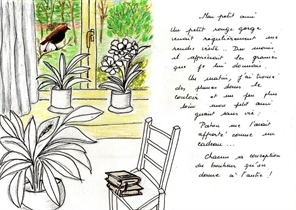 Mon petit ami
Un petit rouge gorge
venait régulièrement me
rendre visite. Du moins
il appréciait les graines
que je lui donnais.
Un matin, j'ai trouvé
des plumes dans le
couloir et un peu plus
loin mon petit ami
gisait sans vie:
Patou me l'avait
apporté comme un
cadeau...
Chacun sa conception
du bonheur qu'on
donne à l'autre!